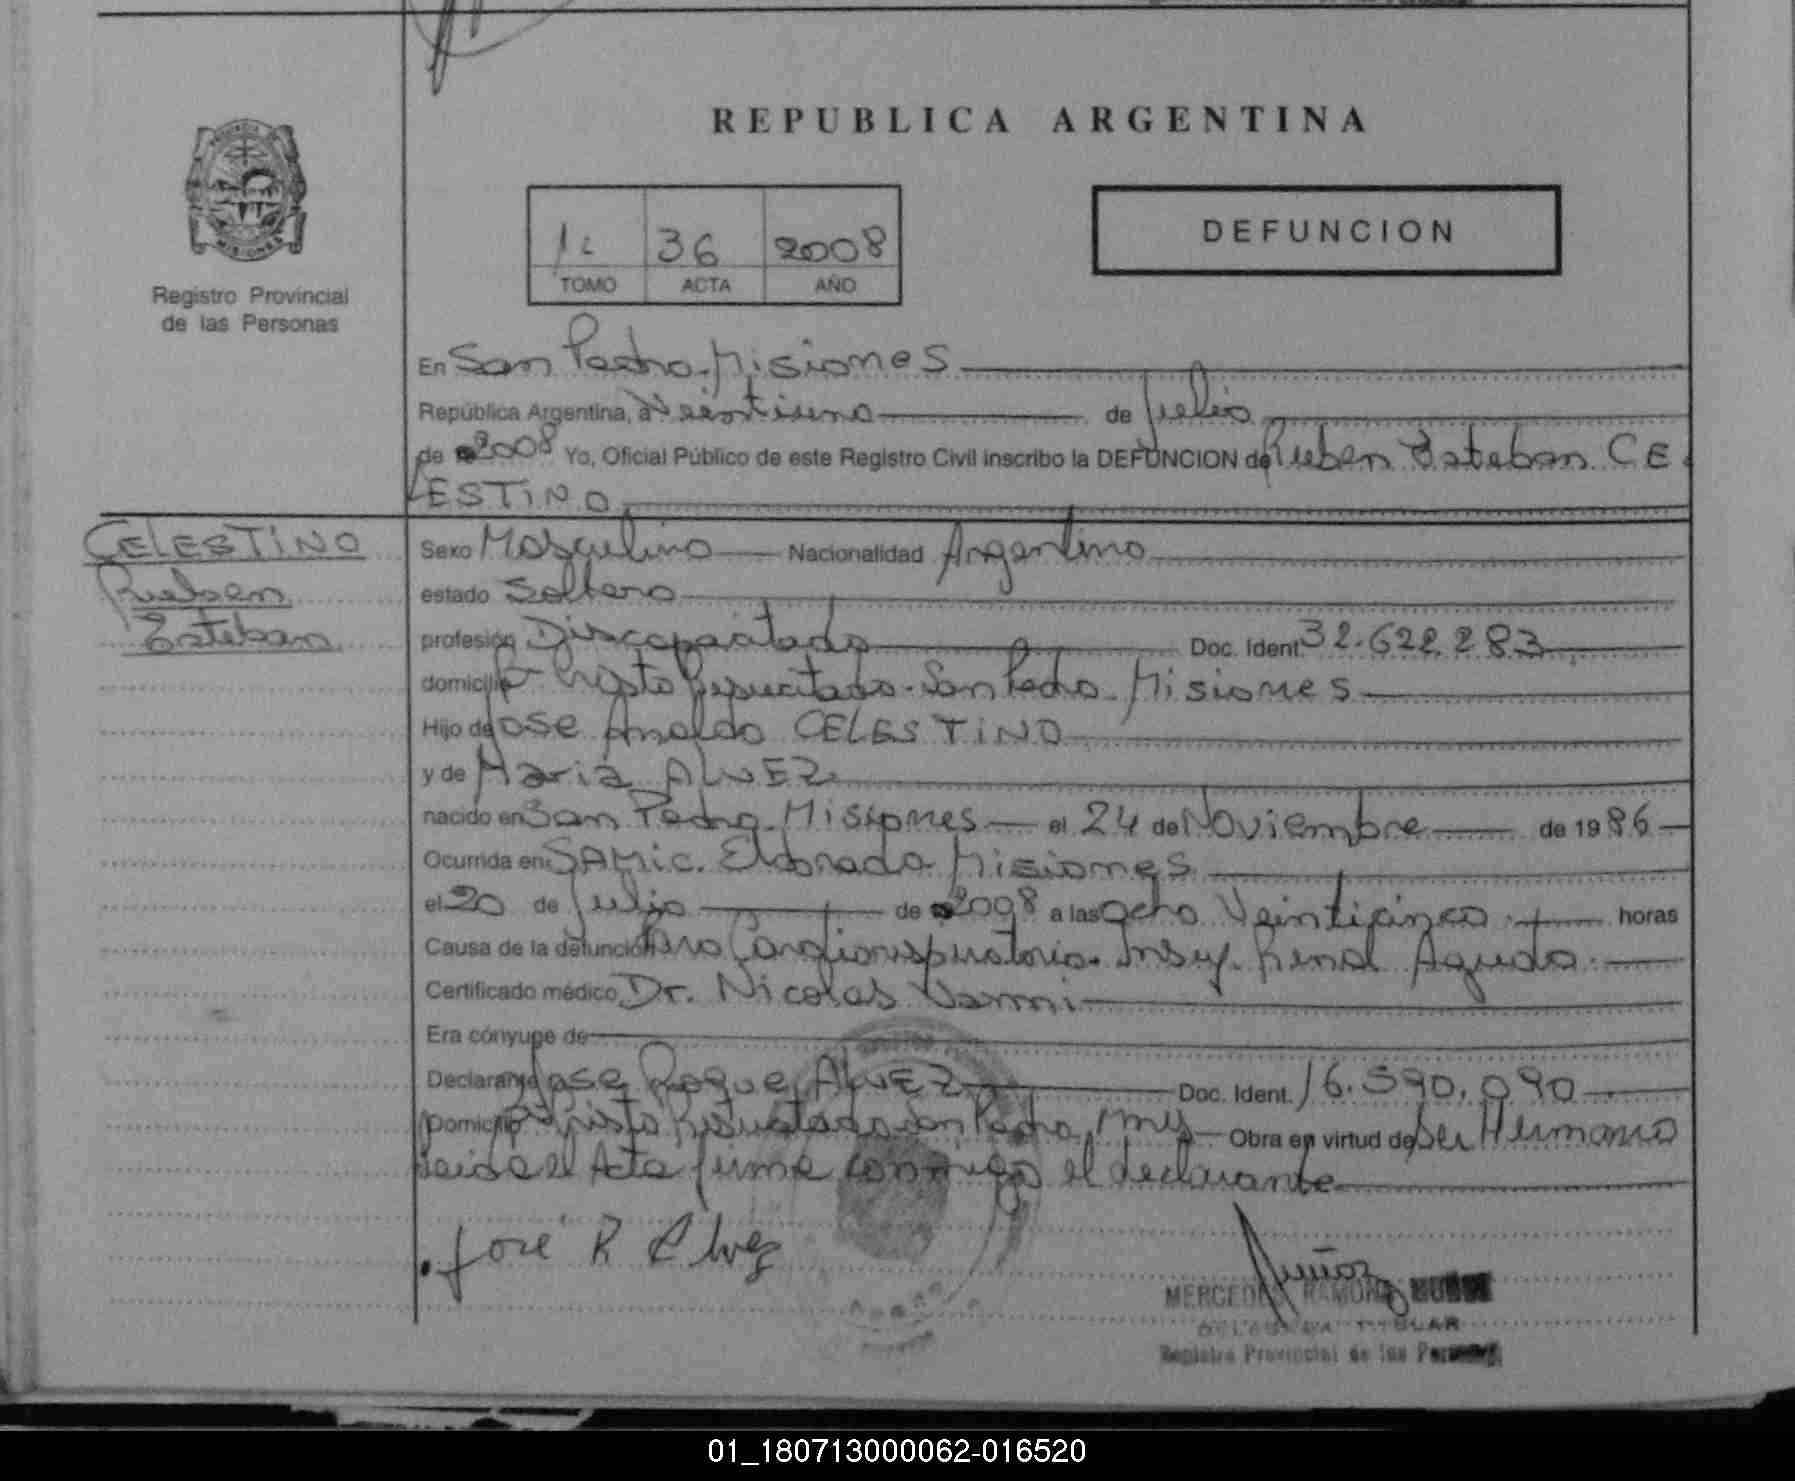 REPUBLICA ARGENTINA
MISIONES
Registro Provincial
de las Personas
36 2008
TOMO ACTA AÑO
DEFUNCION
En San Pedro Misiones
República Argentina, a Veintiuno de Julio
de 2008 Yo, Oficial Público de este Registro Civil inscribo la DEFUNCION de Ruben Esteban CE
LESTINO
CELESTINO
Ruben
Esteban
Sexo Masculino Nacionalidad Argentino
estado Soltero
profesión Discapacitado Doc. Ident. 32.622.283
domicilio Cristo Resucitado - San Pedro Misiones
Hijo de Jose CELESTINO
y de Maria ALVEZ
nacido en San Pedro Misiones el 24 de Noviembre de 1986
Ocurrida en SAMic. Eldorado Misiones
el 20 de Julio de 2008 a las ocho Veinticinco horas
Causa de la defunción Paro Cardiorespiratorio. Insuf. Renal Aguda
Certificado médico Dr. Nicolas
Era cónyuge de
Declarante Jose Roque ALVEZ Doc. Ident. 16.590.090
Domicilio Cristo Resucitado San Pedro Mnes Obra en virtud de Ser Hermano
Leida el Acta firma conmigo el declarante
José R Alvez
Muñoz
MERCEDES RAMONA MUÑOZ
DELEGADA TITULAR
Registro Provincial de las Personas
01_180713000062-016520